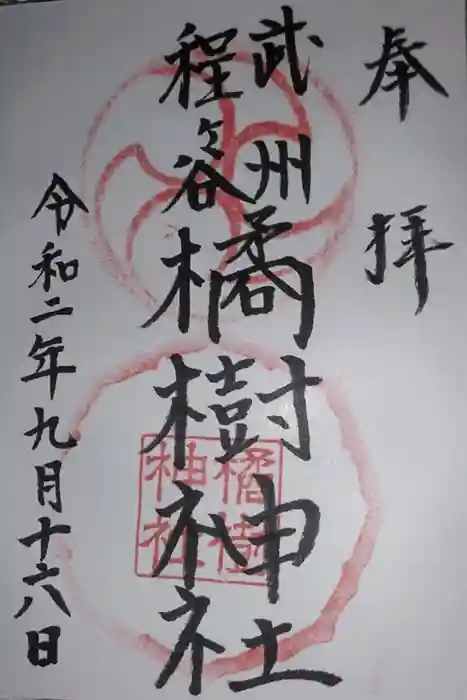 奉拝
武州
程ヶ谷
橘樹神社
橘樹
神社
令和二年九月十六日